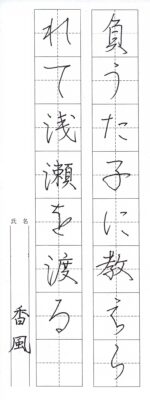 負うた子に教えら
れて浅瀬を渡る
氏名
香風